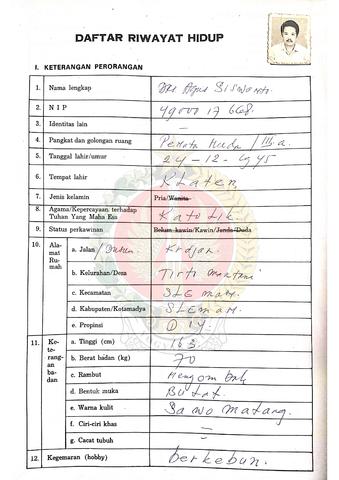 DAFTAR RIWAYAT HIDUP
I. KETERANGAN PERORANGAN
1. Nama lengkap Drs Agus Siswanto
2. N I P 490017668.
3. Identitas lain –
4. Pangkat dan golongan ruang Penata Muda / III.a.
5. Tanggal lahir/umur 24-12-1945
6. Tempat lahir Klaten
7. Jenis kelamin Pria/Wanita
8. Agama/Kepercayaan terhadap
Tuhan Yang Maha Esa Katolik.
9. Status perkawinan Belum kawin/Kawin/Janda/Duda
10. Ala-
mat
Ru-
mah
a. Jalan / Dusun.
b. Kelurahan/Desa Tirto Martani
c. Kecamatan SLEman.
d. Kabupaten/Kotamadya SLEmAn.
e. Propinsi DIY.
11. Ke-
te-
rang-
an
ba-
dan
a. Tinggi (cm) 163
b. Berat badan (kg) 70
c. Rambut
d. Bentuk muka Bulat.
e. Warna kulit Sawo matang.
f. Ciri-ciri khas –
g. Cacat tubuh –
12. Kegemaran (hobby) berkebun.